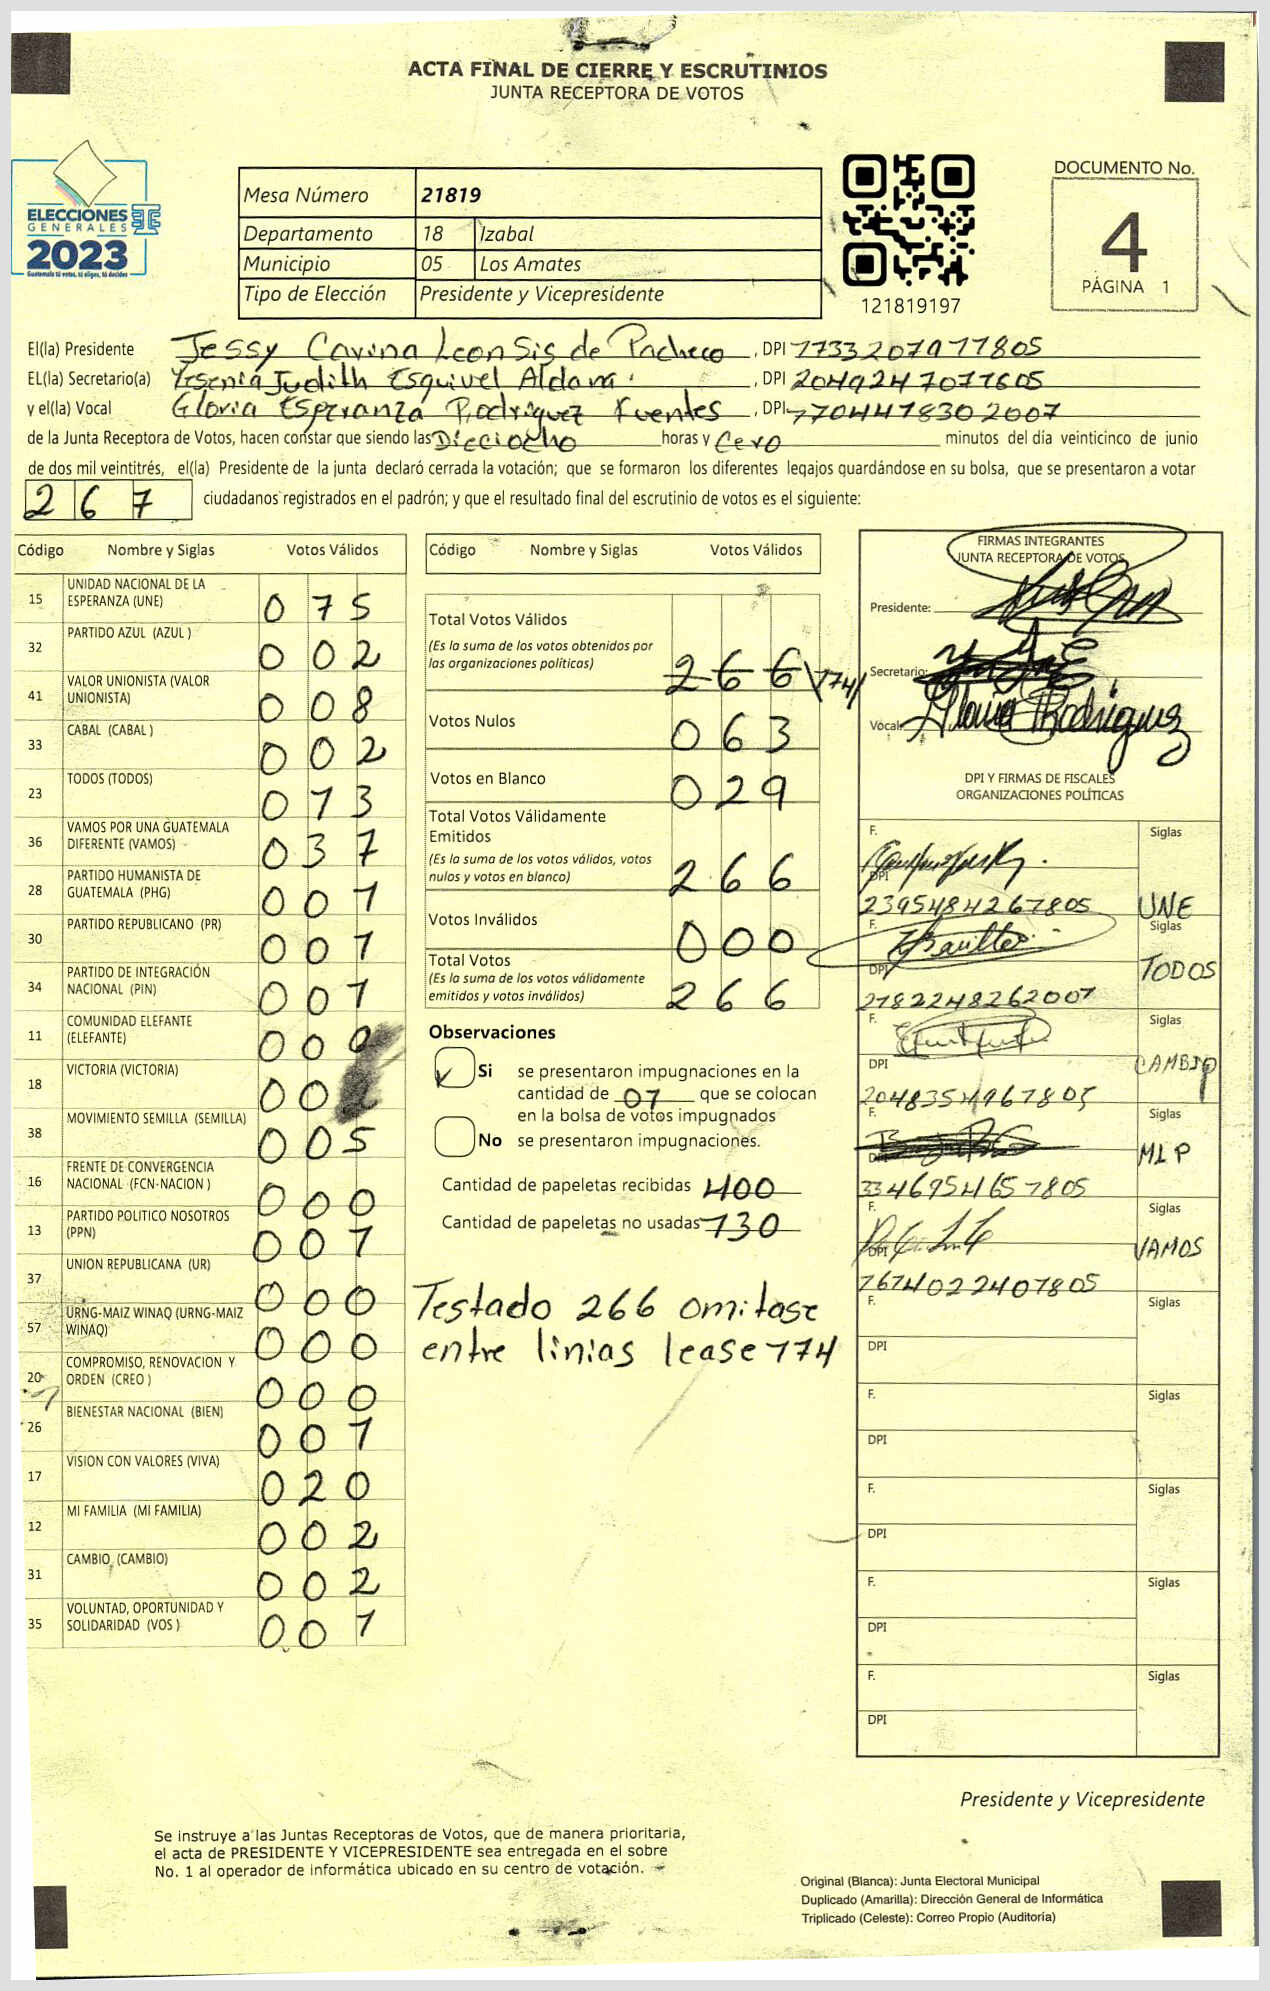 ACTA FINAL DE CIERRE Y ESCRUTINIOS
JUNTA RECEPTORA DE VOTOS
ELECCIONES
GENERALES
2023
Guatemala tú votas, tú eliges, tú decides
Mesa Número 21819
Departamento 18 Izabal
Municipio 05 Los Amates
Tipo de Elección Presidente y Vicepresidente
121819197
DOCUMENTO No.
4
PÁGINA 1
El(la) Presidente Jessy Carina Leon Sis de Pacheco , DPI 1733207971805
EL(la) Secretario(a) Yesenia Judith Esquivel Aldana , DPI 2049247071805
y el(la) Vocal Gloria Esperanza Rodriguez Fuentes , DPI 1704418302007
de la Junta Receptora de Votos, hacen constar que siendo las Dieciocho horas y Cero minutos del día veinticinco de junio
de dos mil veintitrés, el(la) Presidente de la junta declaró cerrada la votación; que se formaron los diferentes legajos guardándose en su bolsa, que se presentaron a votar
267 ciudadanos registrados en el padrón; y que el resultado final del escrutinio de votos es el siguiente:
Código Nombre y Siglas Votos Válidos
15 UNIDAD NACIONAL DE LA ESPERANZA (UNE) 0 1 5
32 PARTIDO AZUL (AZUL ) 0 0 2
41 VALOR UNIONISTA (VALOR UNIONISTA) 0 0 8
33 CABAL (CABAL ) 0 0 2
23 TODOS (TODOS) 0 7 3
36 VAMOS POR UNA GUATEMALA DIFERENTE (VAMOS) 0 3 7
28 PARTIDO HUMANISTA DE GUATEMALA (PHG) 0 0 1
30 PARTIDO REPUBLICANO (PR) 0 0 1
34 PARTIDO DE INTEGRACIÓN NACIONAL (PIN) 0 0 1
11 COMUNIDAD ELEFANTE (ELEFANTE) 0 0 0
18 VICTORIA (VICTORIA) 0 0 2
38 MOVIMIENTO SEMILLA (SEMILLA) 0 0 5
16 FRENTE DE CONVERGENCIA NACIONAL (FCN-NACION ) 0 0 0
13 PARTIDO POLITICO NOSOTROS (PPN) 0 0 1
37 UNION REPUBLICANA (UR) 0 0 0
57 URNG-MAIZ WINAQ (URNG-MAIZ WINAQ) 0 0 0
20 COMPROMISO, RENOVACION Y ORDEN (CREO ) 0 0 0
26 BIENESTAR NACIONAL (BIEN) 0 0 1
17 VISION CON VALORES (VIVA) 0 2 0
12 MI FAMILIA (MI FAMILIA) 0 0 2
31 CAMBIO (CAMBIO) 0 0 2
35 VOLUNTAD, OPORTUNIDAD Y SOLIDARIDAD (VOS ) 0 0 1
Código Nombre y Siglas Votos Válidos
Total Votos Válidos
(Es la suma de los votos obtenidos por
las organizaciones políticas) 2 6 6 \174/
Votos Nulos 0 6 3
Votos en Blanco 0 2 9
Total Votos Válidamente
Emitidos
(Es la suma de los votos válidos, votos
nulos y votos en blanco) 2 6 6
Votos Inválidos 0 0 0
Total Votos
(Es la suma de los votos válidamente
emitidos y votos inválidos) 2 6 6
Observaciones
Si se presentaron impugnaciones en la
cantidad de 07 que se colocan
en la bolsa de votos impugnados
No se presentaron impugnaciones.
Cantidad de papeletas recibidas 400
Cantidad de papeletas no usadas 130
Testado 266 omitase
entre linias lease 174
FIRMAS INTEGRANTES
JUNTA RECEPTORA DE VOTOS
Presidente:
Secretario:
Vocal: Gloria Rodriguez
DPI Y FIRMAS DE FISCALES
ORGANIZACIONES POLÍTICAS
F. Siglas
DPI 2395484267805 UNE
F. Siglas
DPI 2782248262007 TODOS
F. Siglas
DPI 2048354967805 CAMBIO
F. Siglas
DPI 3346954657805 MLP
F. Siglas
DPI 1674022407805 VAMOS
F. Siglas
DPI
F. Siglas
DPI
F. Siglas
DPI
F. Siglas
DPI
F. Siglas
DPI
Presidente y Vicepresidente
Se instruye a las Juntas Receptoras de Votos, que de manera prioritaria,
el acta de PRESIDENTE Y VICEPRESIDENTE sea entregada en el sobre
No. 1 al operador de informática ubicado en su centro de votación.
Original (Blanca): Junta Electoral Municipal
Duplicado (Amarilla): Dirección General de Informática
Triplicado (Celeste): Correo Propio (Auditoría)